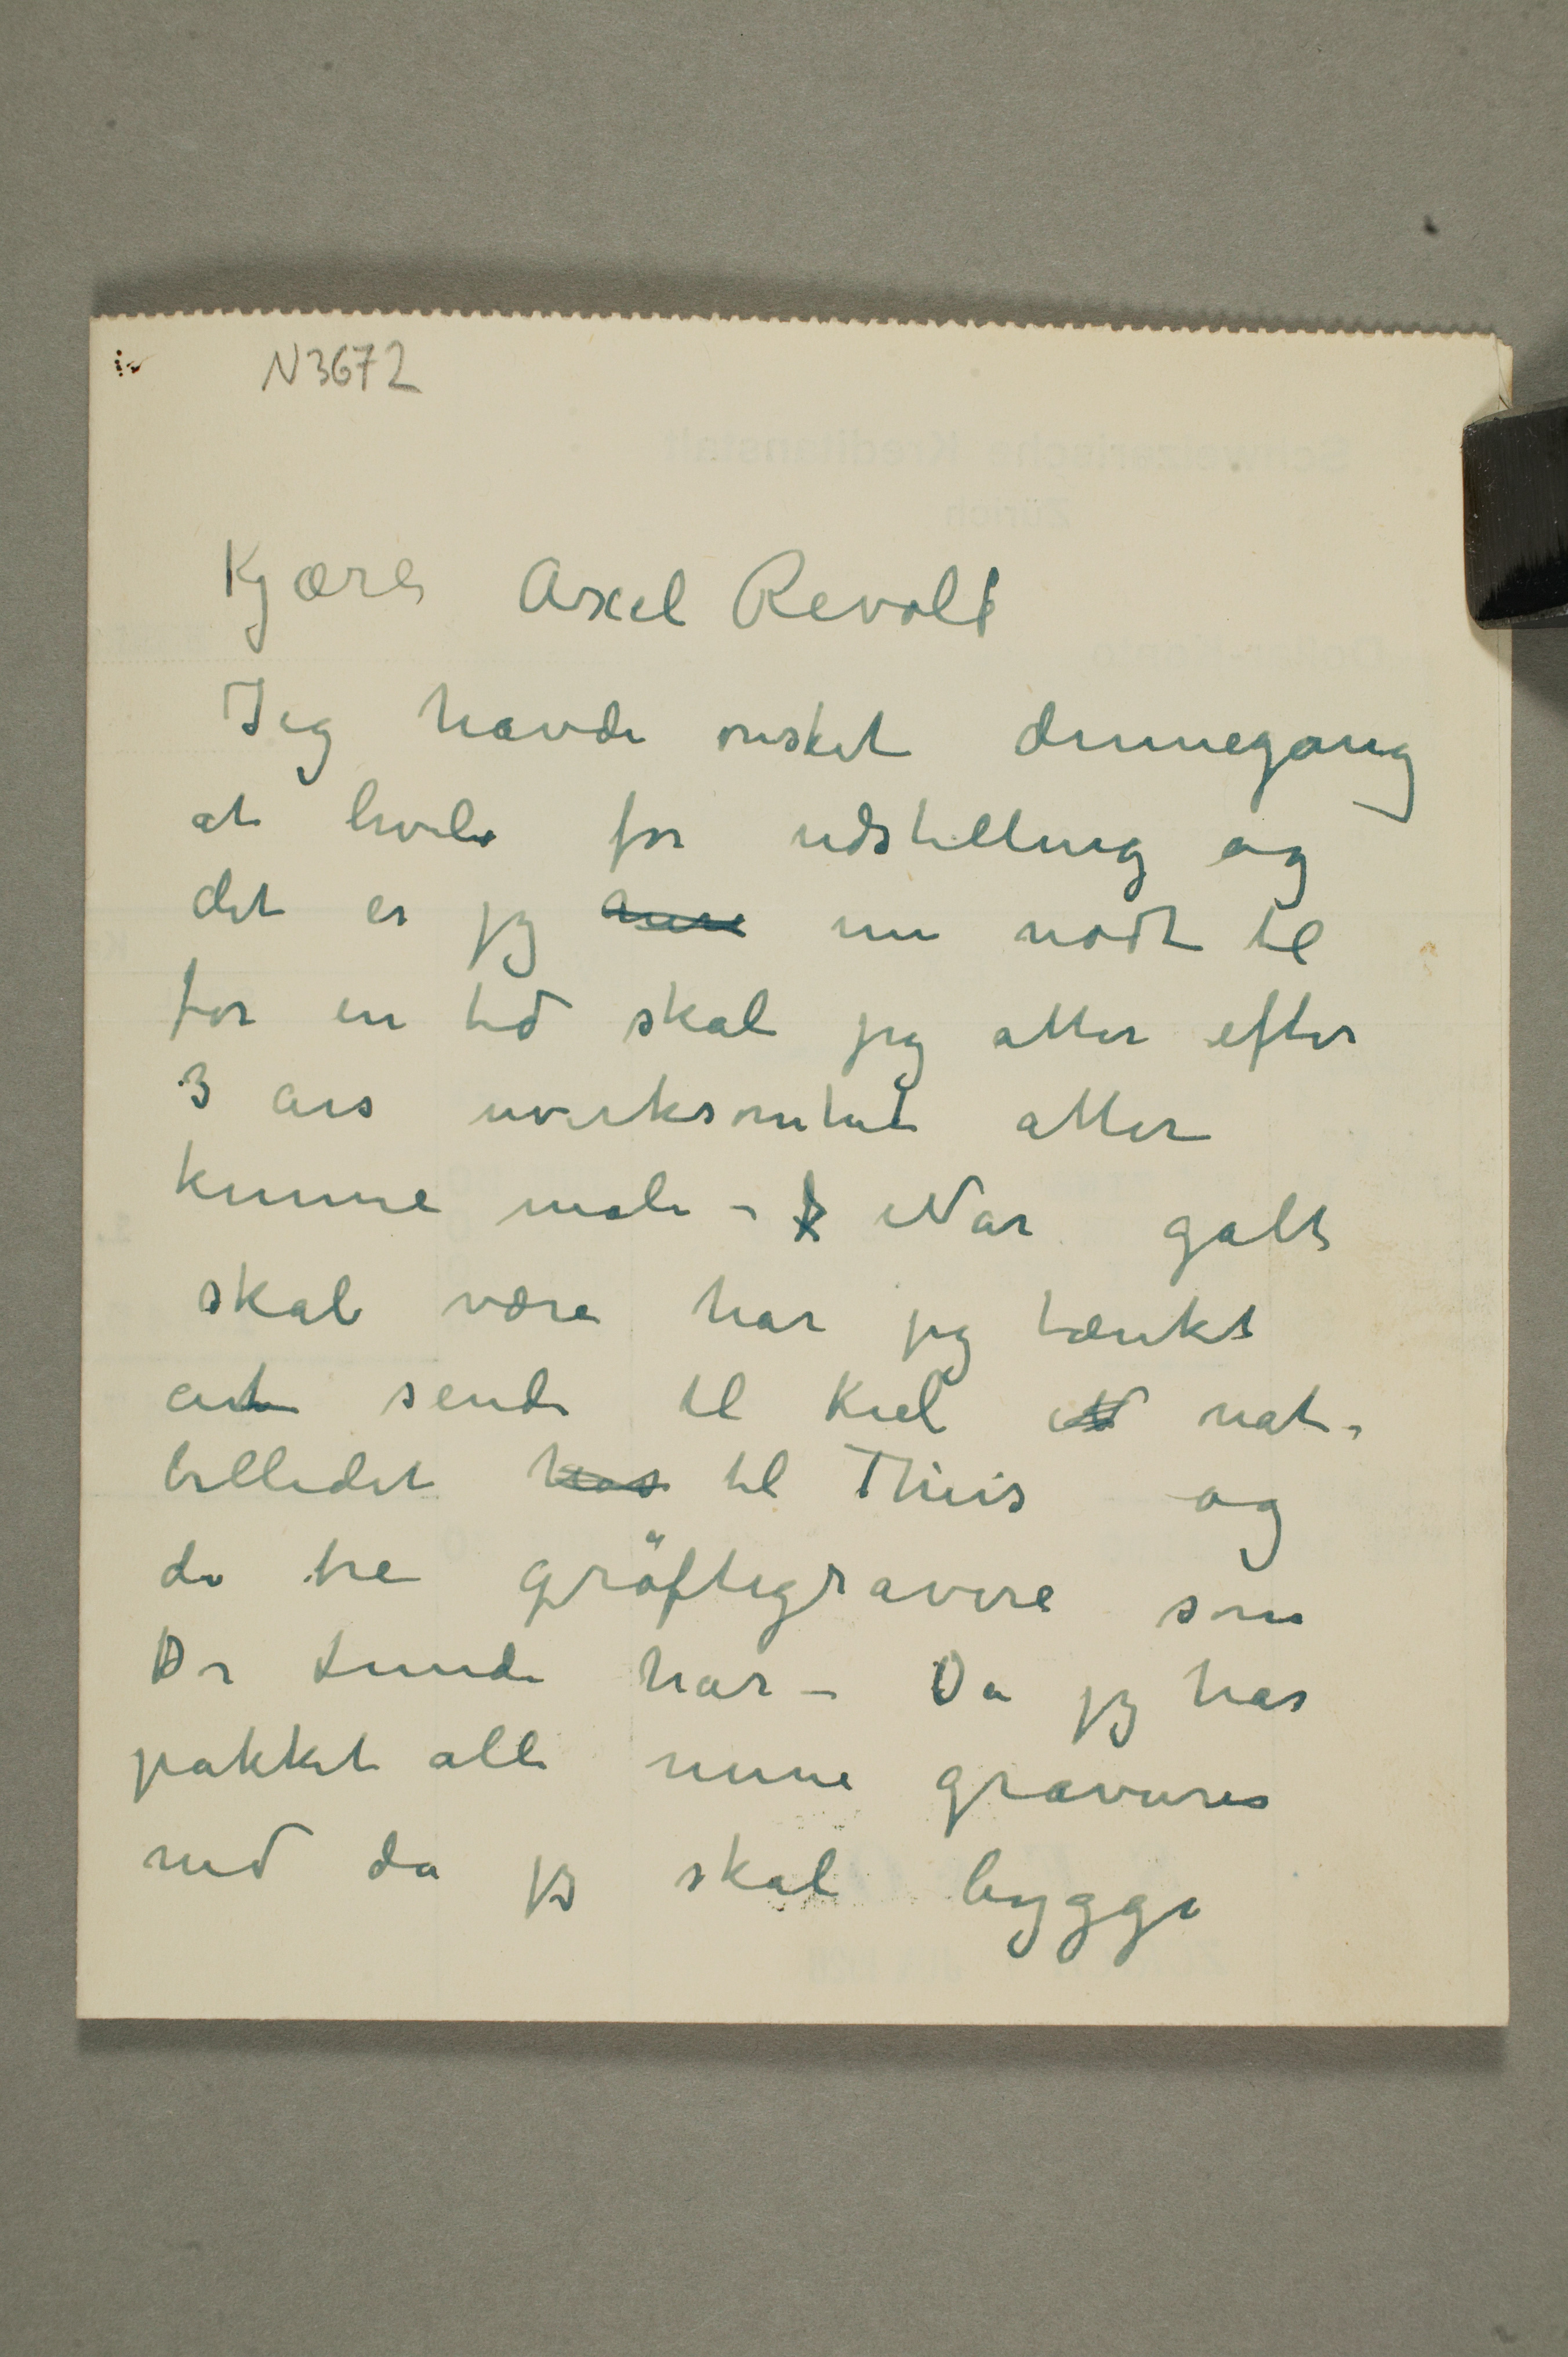 N3672
Schweizerische Kreditanstalt
Zürich
Kjære Axel Revold
Jeg havde ønsket dennegang
at hvile for udstilling og
det er jeg nu nødt til
for en tid skal jeg atter efter
3 års uvirksomhet atter
kunne male – Når galt
skal være har jeg tænkt
at sende til Kiel nat-
billedet til Thiis og
de tre grøftegravere som
Dr Lunde har – Da jeg har
pakket alle mine gravures
ned da jeg skal bygge